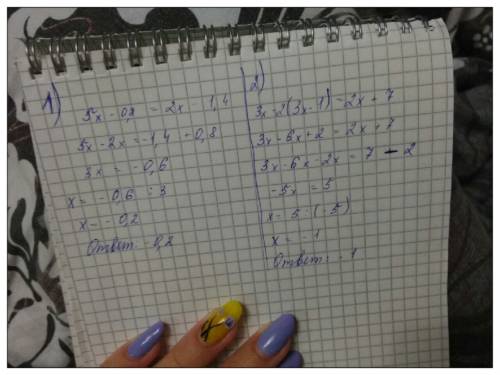 1)
5x - 0,8 = 2x - 1,4
5x - 2x = -1,4 + 0,8
3x = -0,6
x = -0,6 : 3
x = -0,2
Ответ: -0,2
2)
3x - 2(3x - 1) = 2x + 7
3x - 6x + 2 = 2x + 7
3x - 6x - 2x = 7 - 2
-5x = 5
x = 5 : (-5)
x = -1
Ответ: -1